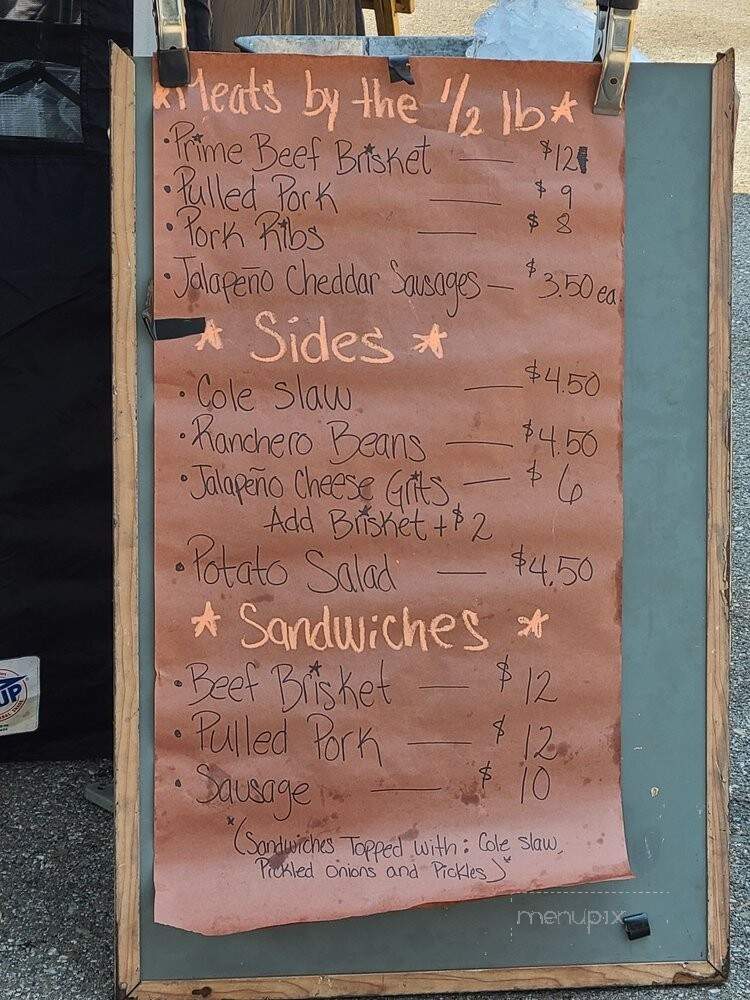 *Meats by the 1/2 lb*
• Prime Beef Brisket — $12
• Pulled Pork — $9
• Pork Ribs — $8
• Jalapeño Cheddar Sausages — $3.50 ea.
* Sides *
• Cole slaw — $4.50
• Ranchero Beans — $4.50
• Jalapeño Cheese Grits — $6
Add Brisket + $2
• Potato Salad — $4.50
* Sandwiches *
• Beef Brisket — $12
• Pulled Pork — $12
• Sausage — $10
*(Sandwiches Topped with: Cole slaw,
Pickled onions and Pickles)*
UP
menupix